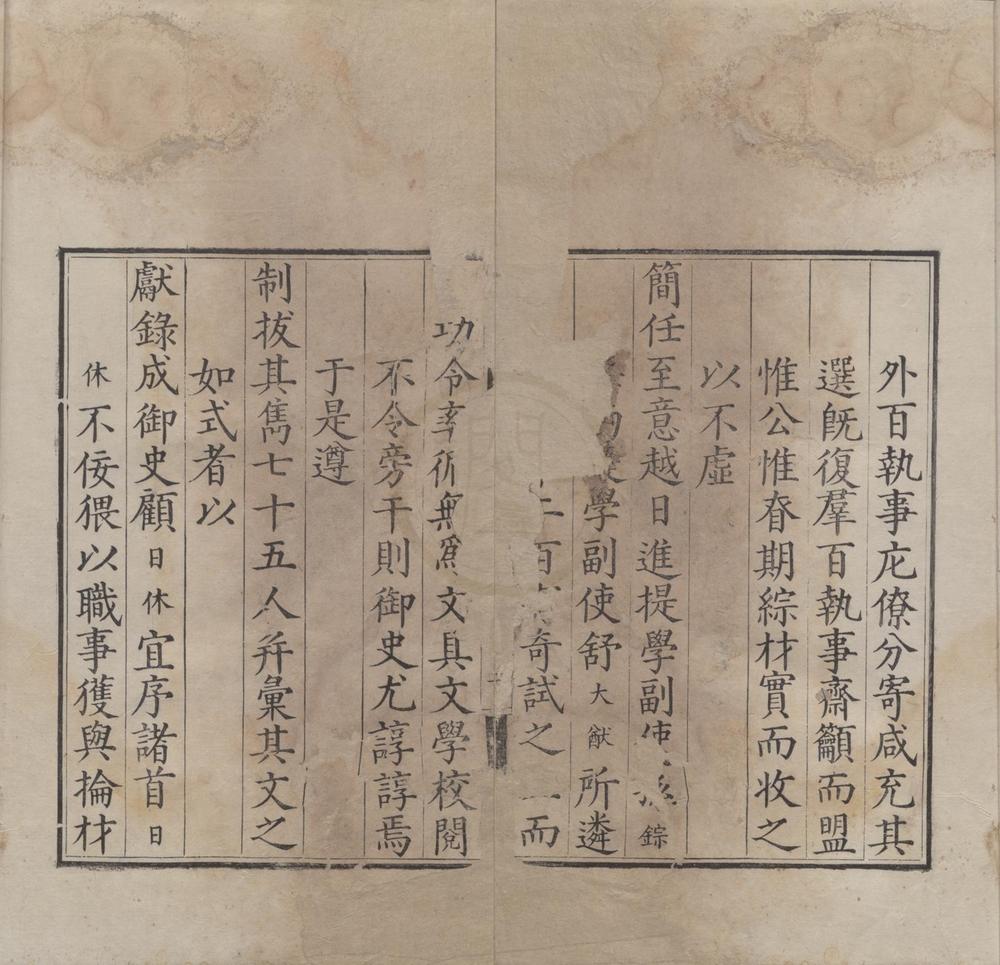 外百執事庀僚分寄咸充其
選旣復羣百執事齋籲而盟
惟公惟昚期綜材實而收之
以不虛
簡任至意越日進提學副使孫錝
學副使舒大猷所遴
百奇試之一而
功令率循無爲文具文學校閱
不令旁干則御史尤諄諄焉
于是遵
制拔其雋七十五人幷彙其文之
如式者以
獻錄成御史顧日休宜序諸首日
休不佞猥以職事獲與掄材